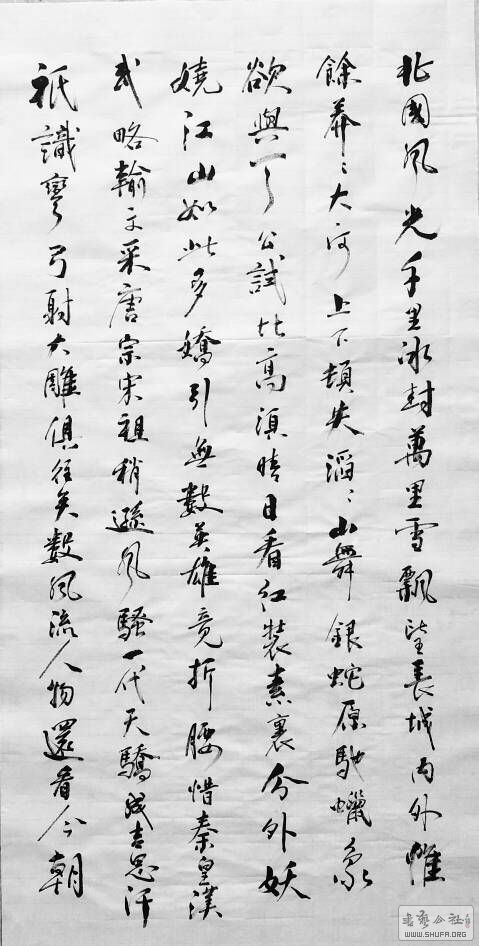 北國風光千里冰封萬里雪飄望長城內外惟
餘莽〻大河上下頓失滔〻山舞銀蛇原馳蠟象
欲與天公試比高須晴日看紅裝素裹分外妖
嬈江山如此多嬌引無數英雄竟折腰惜秦皇漢
武略輸文采唐宗宋祖稍遜風騷一代天驕成吉思汗
祇識彎弓射大雕俱往矣數風流人物還看今朝
書藝公社
WWW.SHUFA.ORG